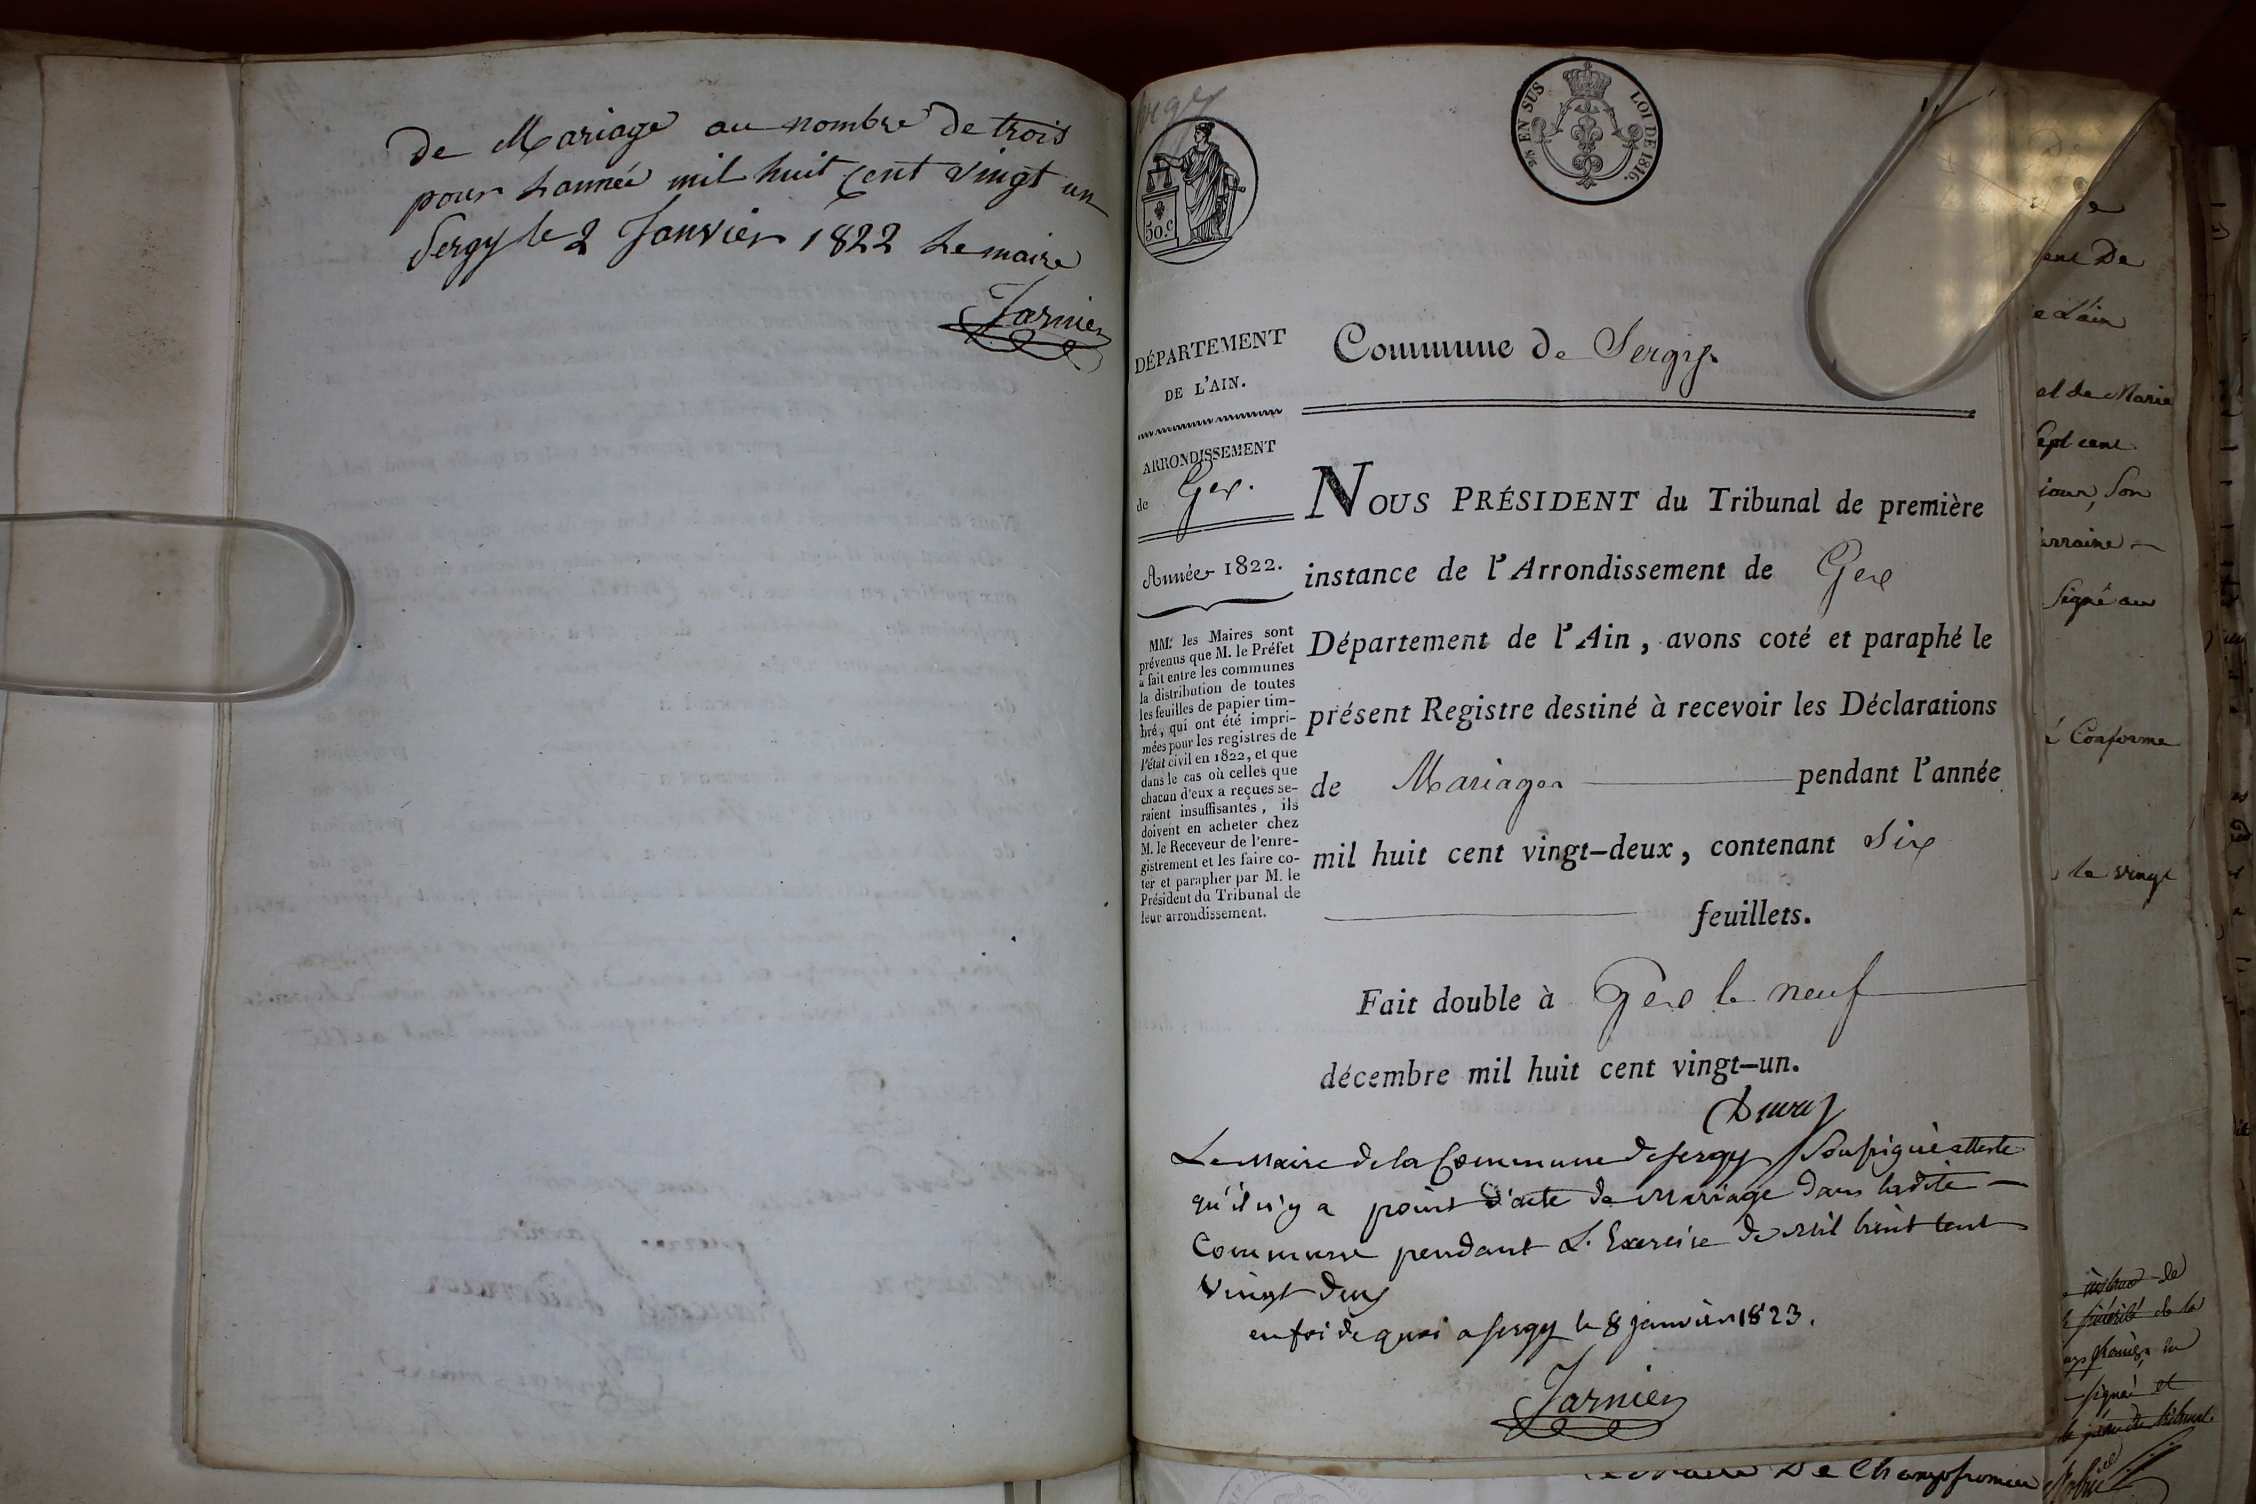 de Mariage au nombre de trois
pour Lannée mil huit Cent vingt un
Sergy le 2 Janvier 1822 Le maire
Jarnier
30.c
EN SUS
LOI DE 1816.
DÉPARTEMENT
DE L'AIN.
ARRONDISSEMENT
de Gex.
Année 1822.
MM.rs les Maires sont
prévenus que M. le Préfet
a fait entre les communes
la distribution de toutes
les feuilles de papier tim-
bré, qui ont été impri-
mées pour les registres de
l'état civil en 1822, et que
dans le cas où celles que
chacun d'eux a reçues se-
raient insuffisantes, ils
doivent en acheter chez
M. le Receveur de l'enre-
gistrement et les faire co-
ter et parapher par M. le
Président du Tribunal de
leur arrondissement.
Commune de Sergy.
NOUS PRÉSIDENT du Tribunal de première
instance de l'Arrondissement de Gex
Département de l'Ain, avons coté et paraphé le
présent Registre destiné à recevoir les Déclarations
de Mariages pendant l'année
mil huit cent vingt-deux, contenant Six
feuillets.
Fait double à Gex le neuf
décembre mil huit cent vingt-un.
Le Maire de la Commune de sergy Soussigné atteste
qu'il n'y a point d'acte de Mariage dans ladite
Commune pendant L'Exercice de mil huit cent
vingt deux
en foi de quoi a sergy le 8 janvier 1823.
Jarnier
ent De
e L'ain
et de Marie
Sept cent
jour, Son
Signé au
Conforme
le vingt
signé et
De Champfromier